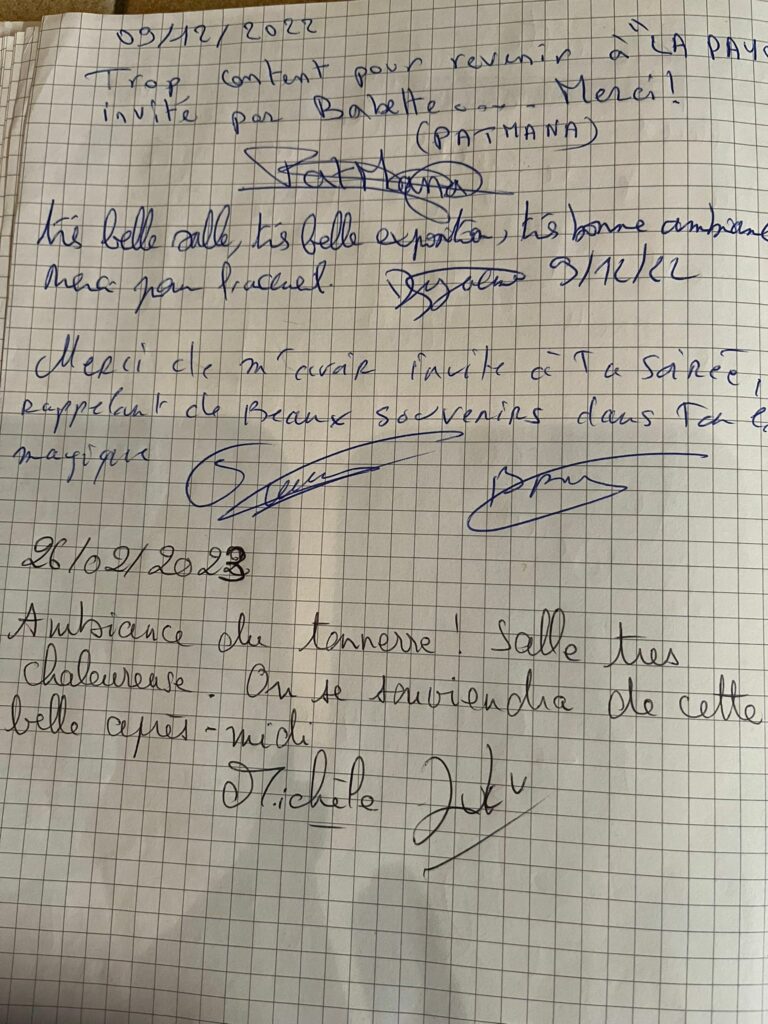 09/12/2022
Trop content pour revenir à "LA PAYS
invité par Babette..... Merci!
(PATMANA)
PatMana
très belle salle, très belle exposition, très bonne ambiance
merci pour l'accueil. 9/12/22
Merci de m'avoir invité à Ta Soirée,
rappelant de Beaux souvenirs dans Ton
magique
26/02/2023
Ambiance du tonnerre! Salle très
chaleureuse. On se souviendra de cette
belle après-midi
Michèle